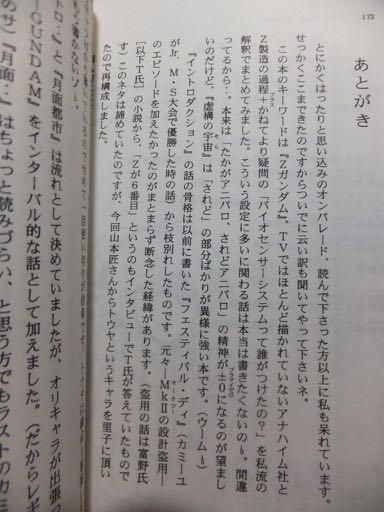 172
あとがき
とにかくはったりと思い込みのオンパレード、読んで下さった方以上に私も呆れています。
せっかくここまできたのですからついでに云い訳も聞いてやって下さいネ。
この本のキーワードは『Zガンダム』。TVではほとんど描かれていないアナハイム社と
Z製造の過程+かねてより疑問の「バイオセンサーシステムって誰がつけたの?」を私流の
解釈でまとめてみました。こういう設定に多いに関わる話は本当は書きたくないのー。間違
ってるから…。本来は「たかがアニパロ、されどアニパロ」の精神が±0になるのが望まし
いのだけど、『虚構の宇宙』は「されど」の部分ばかりが異様に強い本です。(ウーム)
『イントロダクション』の話の骨格は以前に書いた『フェスティバル・ディ』(カミーユ
がJr.M.S大会で優勝した時の話)から枝別れしたものです。元々MkⅡの設計盗用—
のエピソードを加えたかったのがまとまらず断念した経緯があります。(盗用の話は富野氏
[以下T氏]の小説から、「Zが6番目」というのもインタビューでT氏が答えていたもので
す)このネタは諦めていたのですが、今回山本匠さんからトウヤというキャラを里子に頂い
たので再構成しました。
トロ』と『月面都市』は流れとして決めていましたが、オリキャラが出張っ
GUNDAM』をインターバル的な話として加えました。(だからレキ
のサ)『月面…』はちょっと読みづらい、と思う方でもラストのカミ